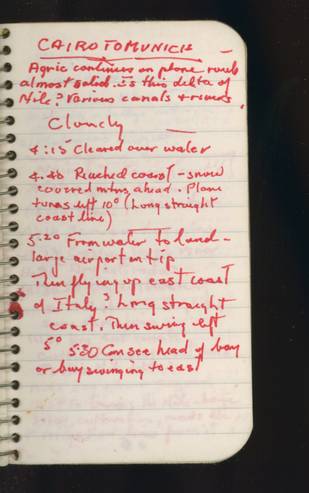 CAIRO TO MUNICH -
Agric continues on plane route
almost solid. Is this delta of
Nile? Various canals + rivers,
Cloudy
4:15 Cleared over water
4:40 Reached coast - snow
covered mtns ahead. Plane
turns left 10° (Long straight
coast line)
5:20 From water to land -
large airport on tip
Then flying up east coast
of Italy? Long straight
coast. Then swing left
5°
5:30 Can see head of bay
or bay swinging to east